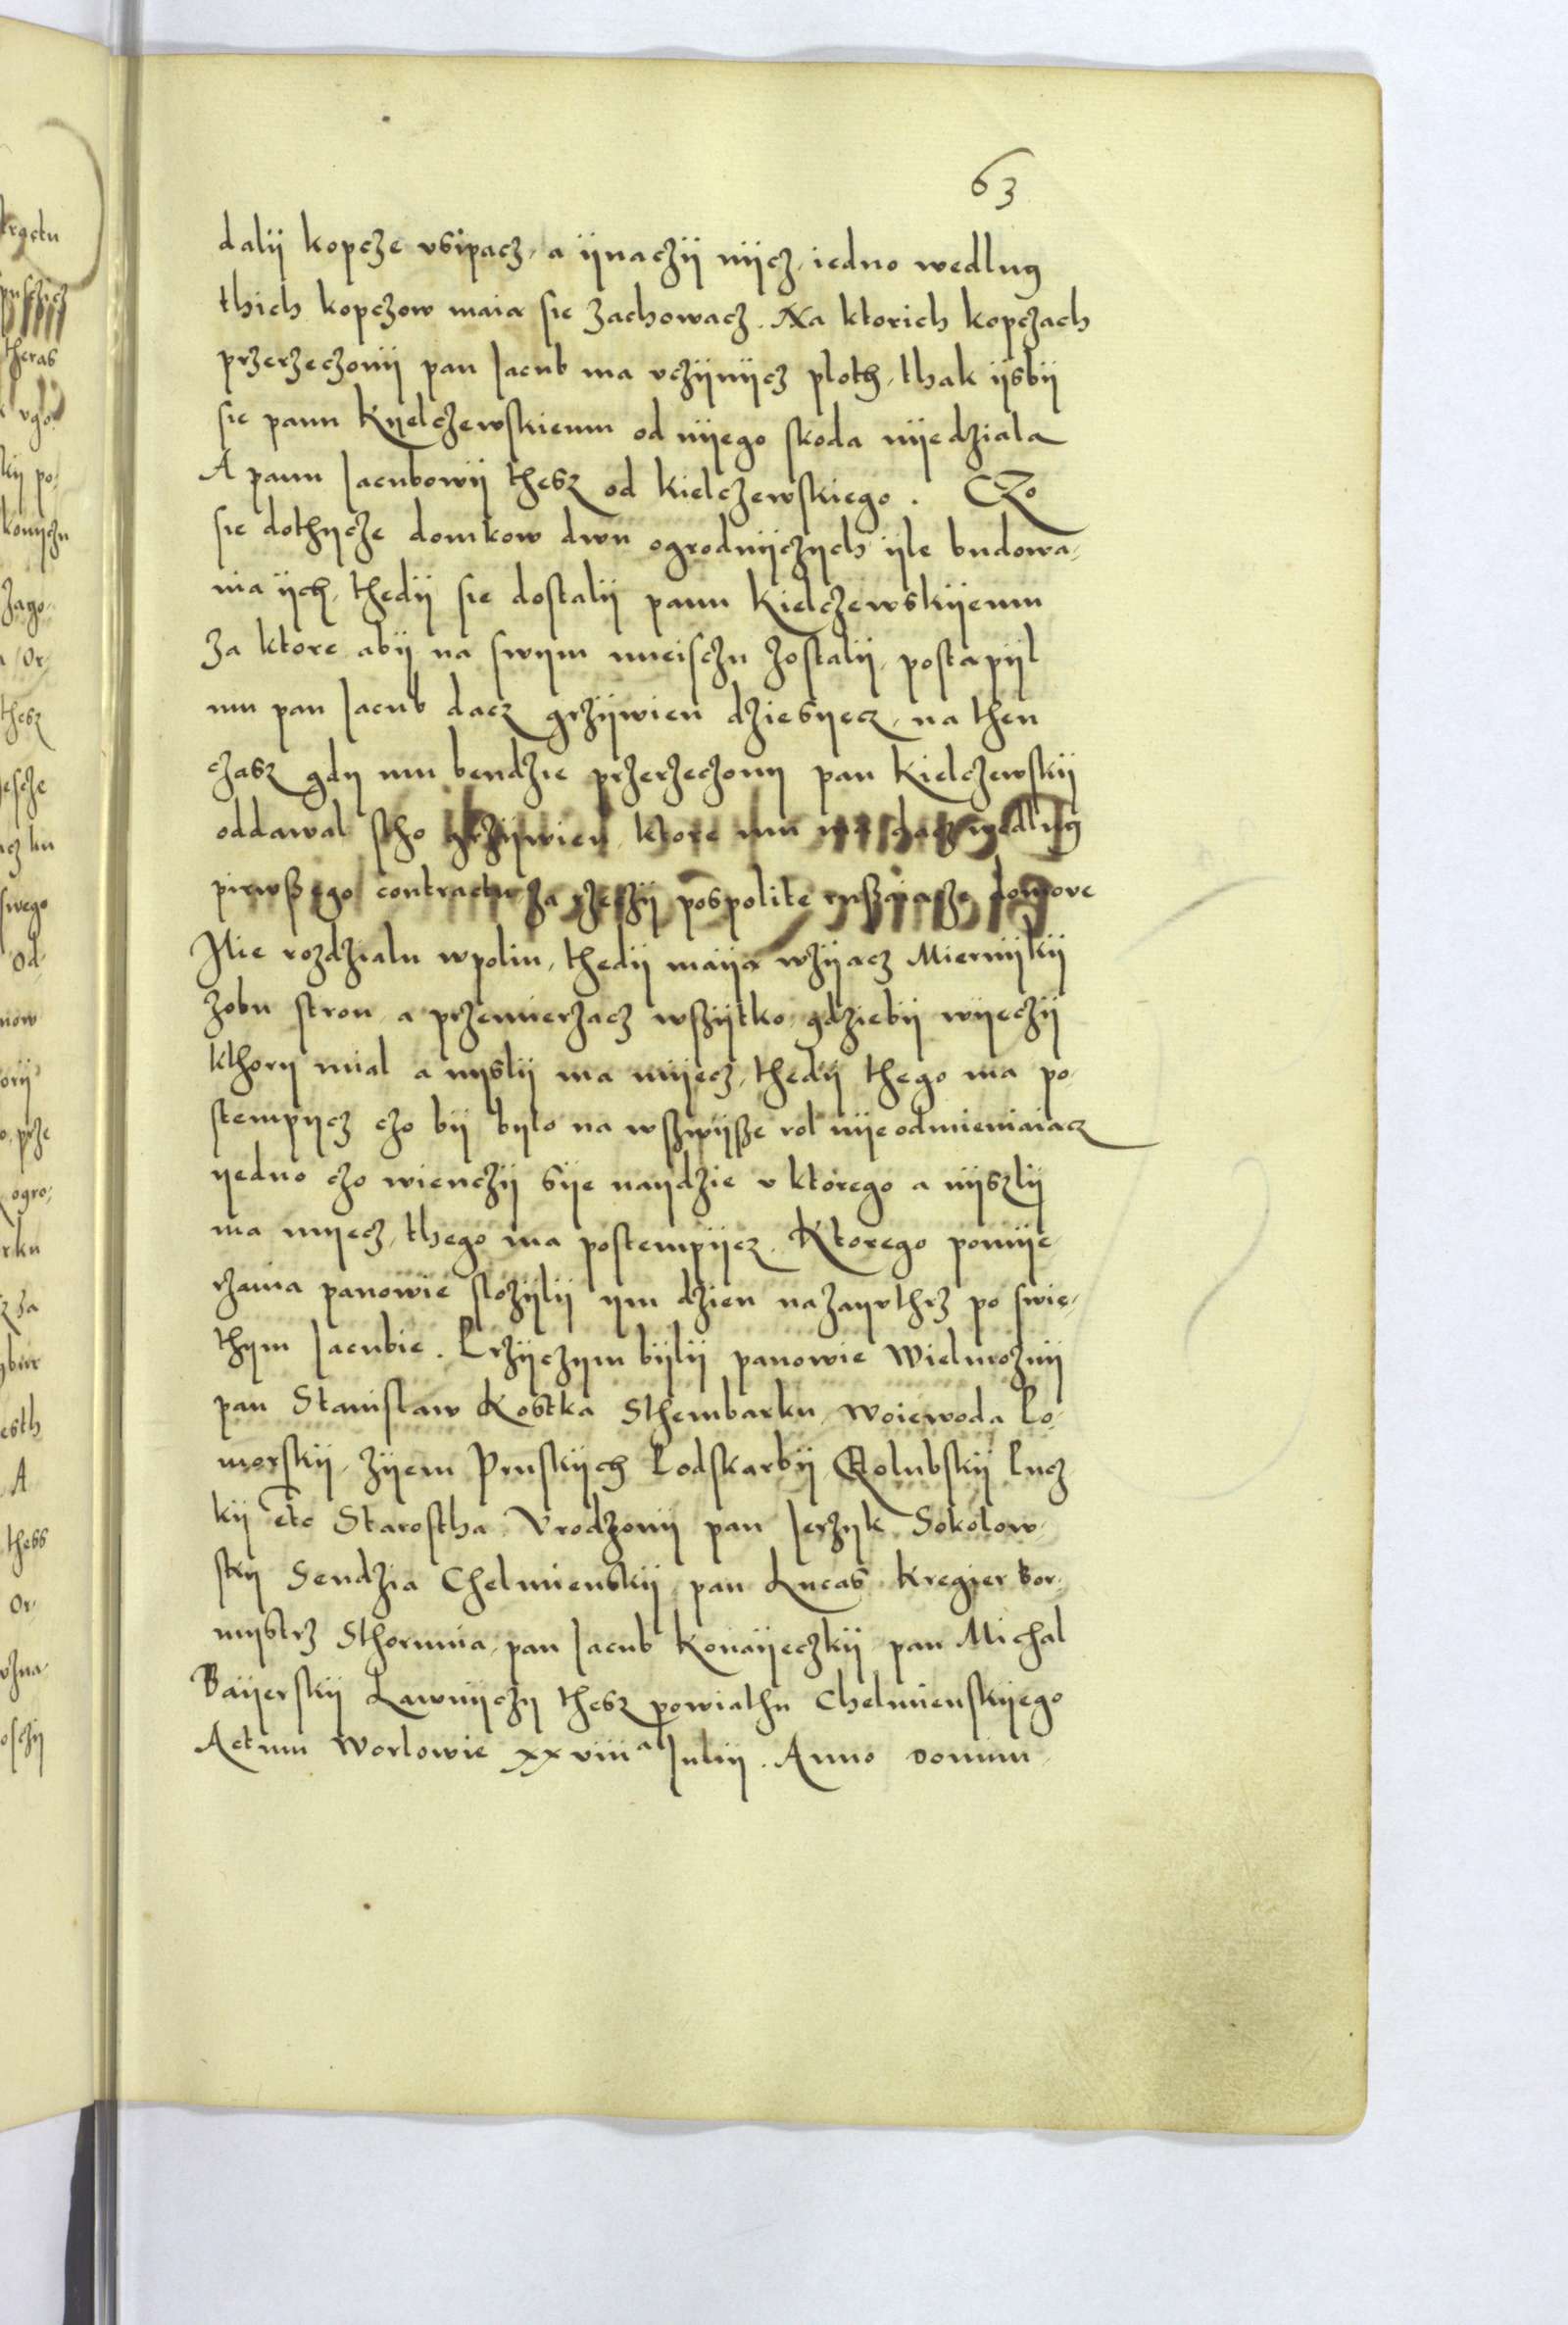 63
dalij kopcze vsipacz, a ijnaczij nijcz, iedno wedlug
thich kopczow maia sie zachowacz. Na ktorich kopczach
przerzeczonij pan Jacub ma vczijnijcz ploth, thak ijsbij
sie panu Kijelczewskiemu od nijego skoda nijedziala
A panu Jacubowij thesz od Kielczewskiego. CZo
sie dothijcze domkow dwu ogrodnijczijch ijle budowa-
nia ijch, thedij sie dostalij panu Kielczewskijemu
za ktore abij na swijm mieisczu zostalij, postapijl
mu pan Jacub dacz grzijwien dziesijecz, na then
czasz gdij mu bendzie przerzeczonij pan Kielczewskij
oddawal stho grzijwien, ktore mu ma dacz wedlug
pirwssego contractu za rzeczij pospolite russaiacze domove
Jtie rozdzialu wpoliu, thedij maija wzijacz Miernijkij
zobu stron a przemierzacz wszijtko, gdziebij wijeczij
kthorij mial a nijslij ma mijecz, thedij thego ma po-
stempijcz czo bij bijlo na wszwijsse rol nijeodmieniaiacz
ijedno czo wienczij sije naijdzie v ktorego a nijszlij
ma mijecz, thego ma postempijcz. Ktorego pomije-
rzania panowie slozijlij ijm dzien nazaijvthrz po swie-
thijm Jacubie. Przijczijm bijlij panowie Wielmoznij
pan Stanislaw Kostka Sthembarku, woiewoda Po-
morskij, zijem Pruskijch Podskarbij, Golubskij Pucz
kij etc Starostha, Vrodzonij pan Jerzijk Sokolow-
skij Sendzia Chelmienskij, pan Lucas Kregier Bor-
mijstrz Sthorunia, pan Jacub Konaijeczkij, pan Michal
Baijerskij Lawnijczij thesz powiathu Chelmienskijego
Actum Worlowie xxviiia Julij. Anno domini